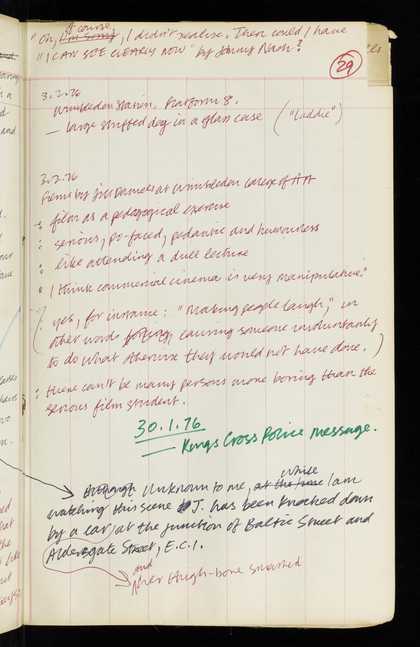 of course
"Oh, I'm sorry, I didn't realise. Then could I have
"I CAN SEE CLEARLY NOW" by Johnny Nash?
29
3.2.76
Wimbledon Station. Platform 8.
— large stuffed dog in a glass case ("Laddie")
3.2.76
Films by Jill Daniels at Wimbledon College of Art
: film as a pedagogical exercise
: serious, po-faced, pedantic and humourless
: like attending a dull lecture
: "I think commercial cinema is very manipulative."
(: yes, for instance: "Making people laugh", in
other words forcing, causing someone involuntarily
to do what otherwise they would not have done.)
: there can't be many persons more boring than the
serious film student.
30.1.76
— Kings Cross Police message.
while
Although Unknown to me, at the time I am
watching this scene J. has been knocked down
by a car, at the junction of Baltic Street and
Aldersgate Street, E.C.1.
and
her thigh-bone smashed